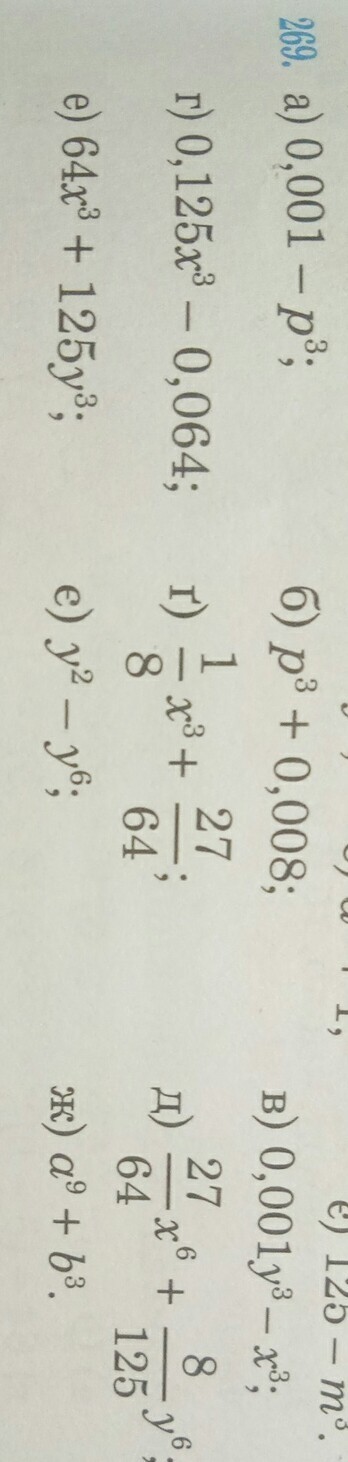 є) 125 – m³.
269. а) 0,001 – p³; б) p³ + 0,008; в) 0,001y³ – x³;
г) 0,125x³ – 0,064; ґ) 1/8 x³ + 27/64; д) 27/64 x⁶ + 8/125 y⁶;
е) 64x³ + 125y³; є) y² – y⁶; ж) a⁹ + b³.